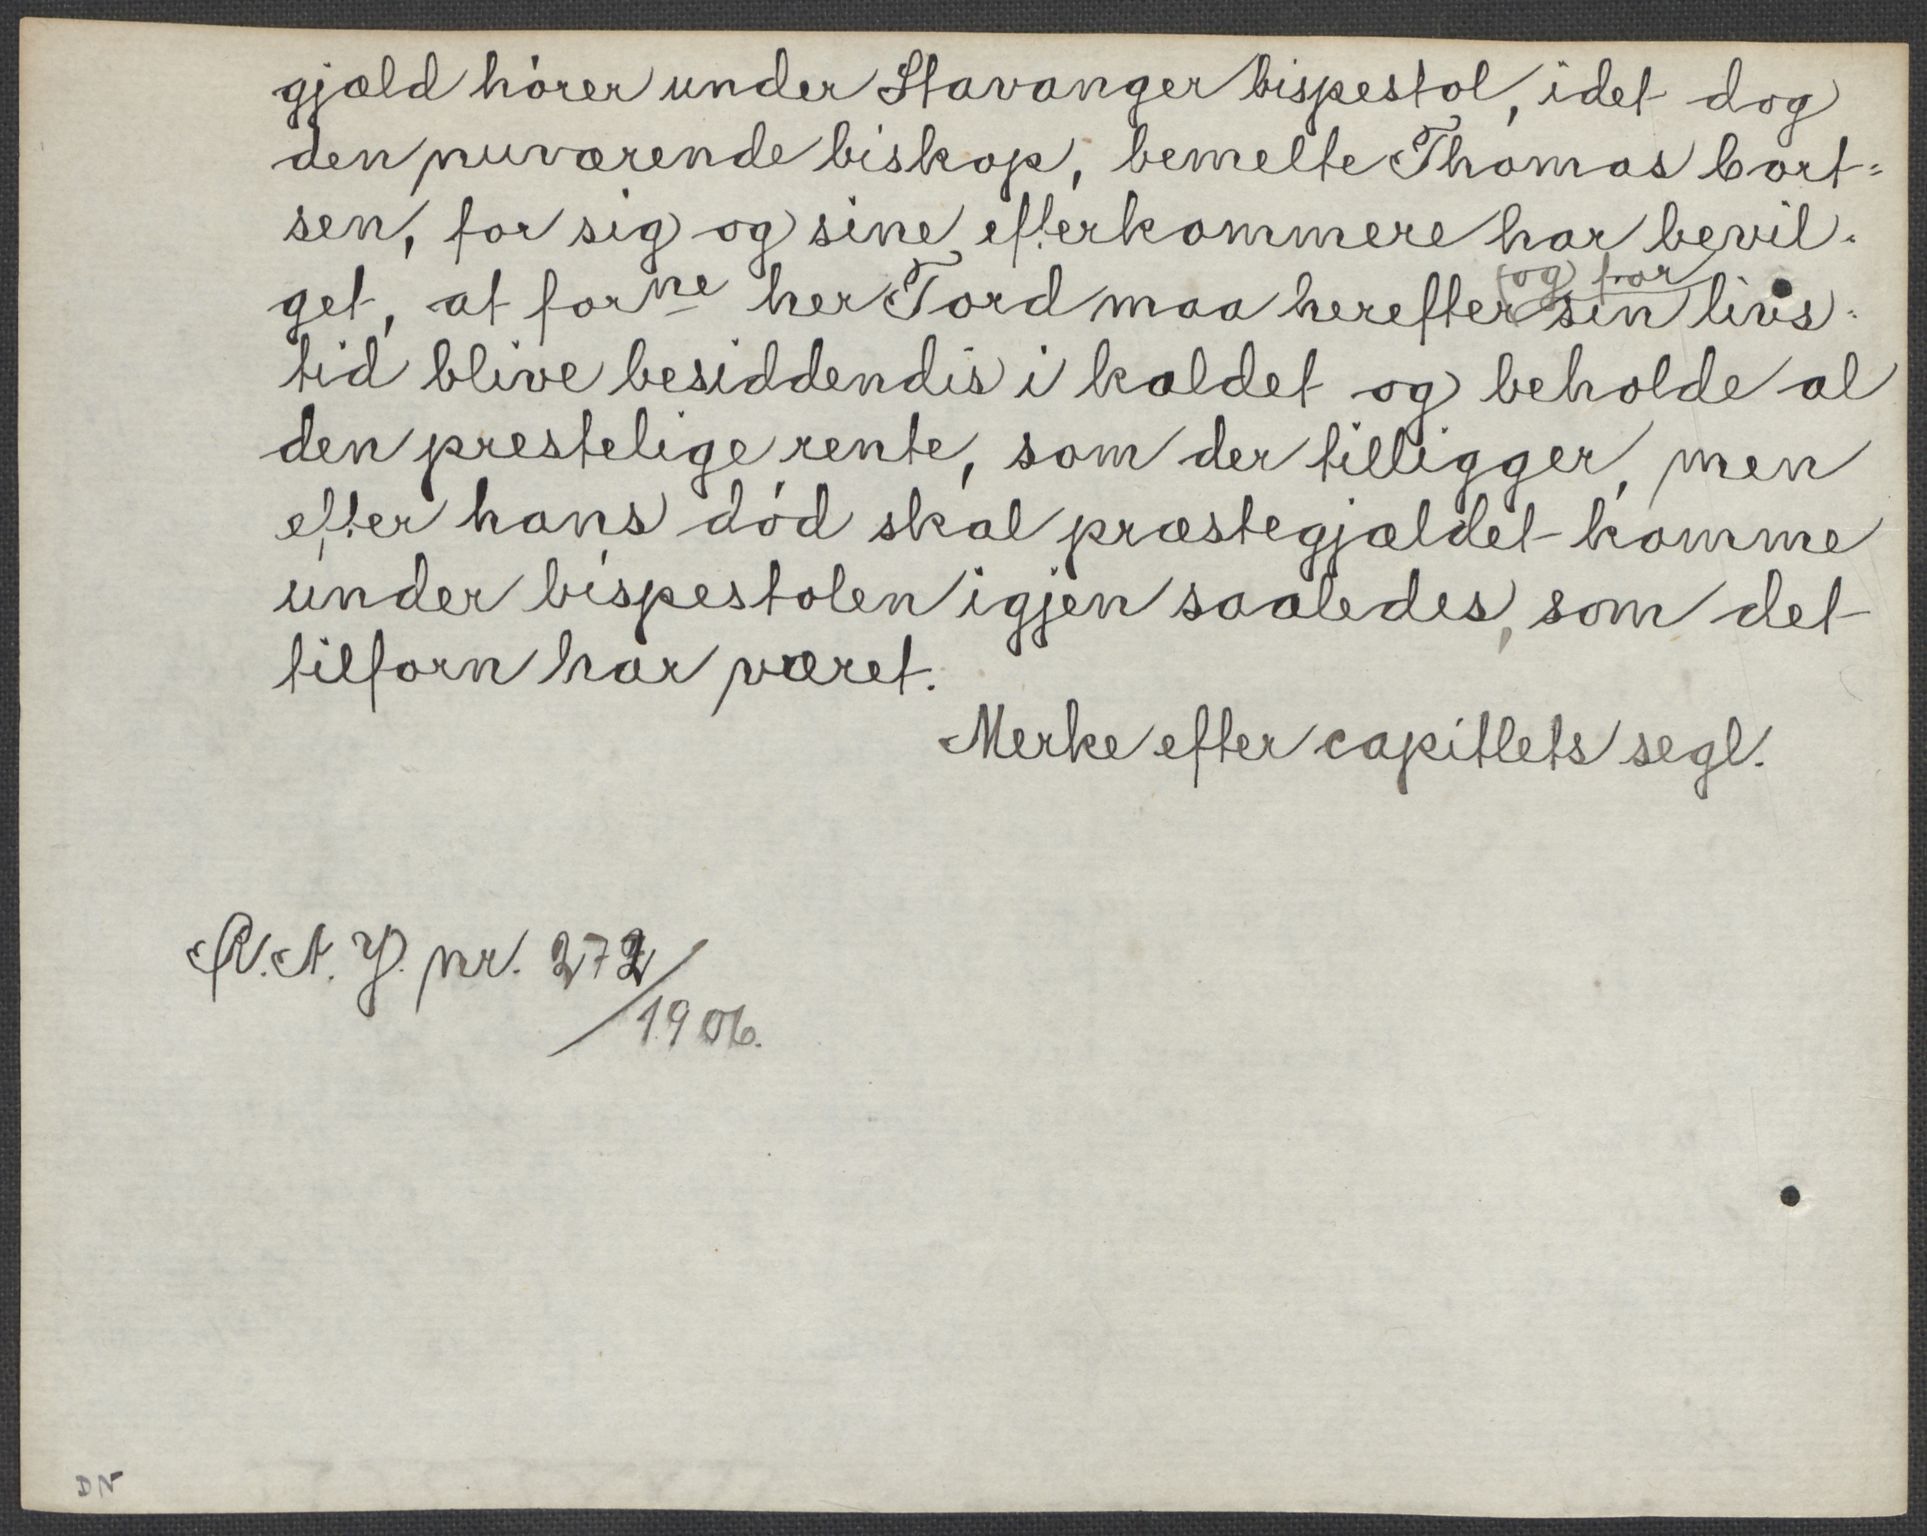 gjæld hörer under Stavanger bispestol, idet dog
den nuværende biskop, bemelte Thomas Cort=
sen, for sig og sine efterkommere har bevil=
get, at forne her Tord maa herefter (og for) sin livs=
tid blive besiddendis i kaldet og beholde al
den prestelige rente, som der tilligger, men
efter hans död skal præstegjældet komme
under bispestolen igjen saaledes, som det
tilforn har været.
Merke efter capitlets segl.
R. A. J. nr. 272/1906.
DN